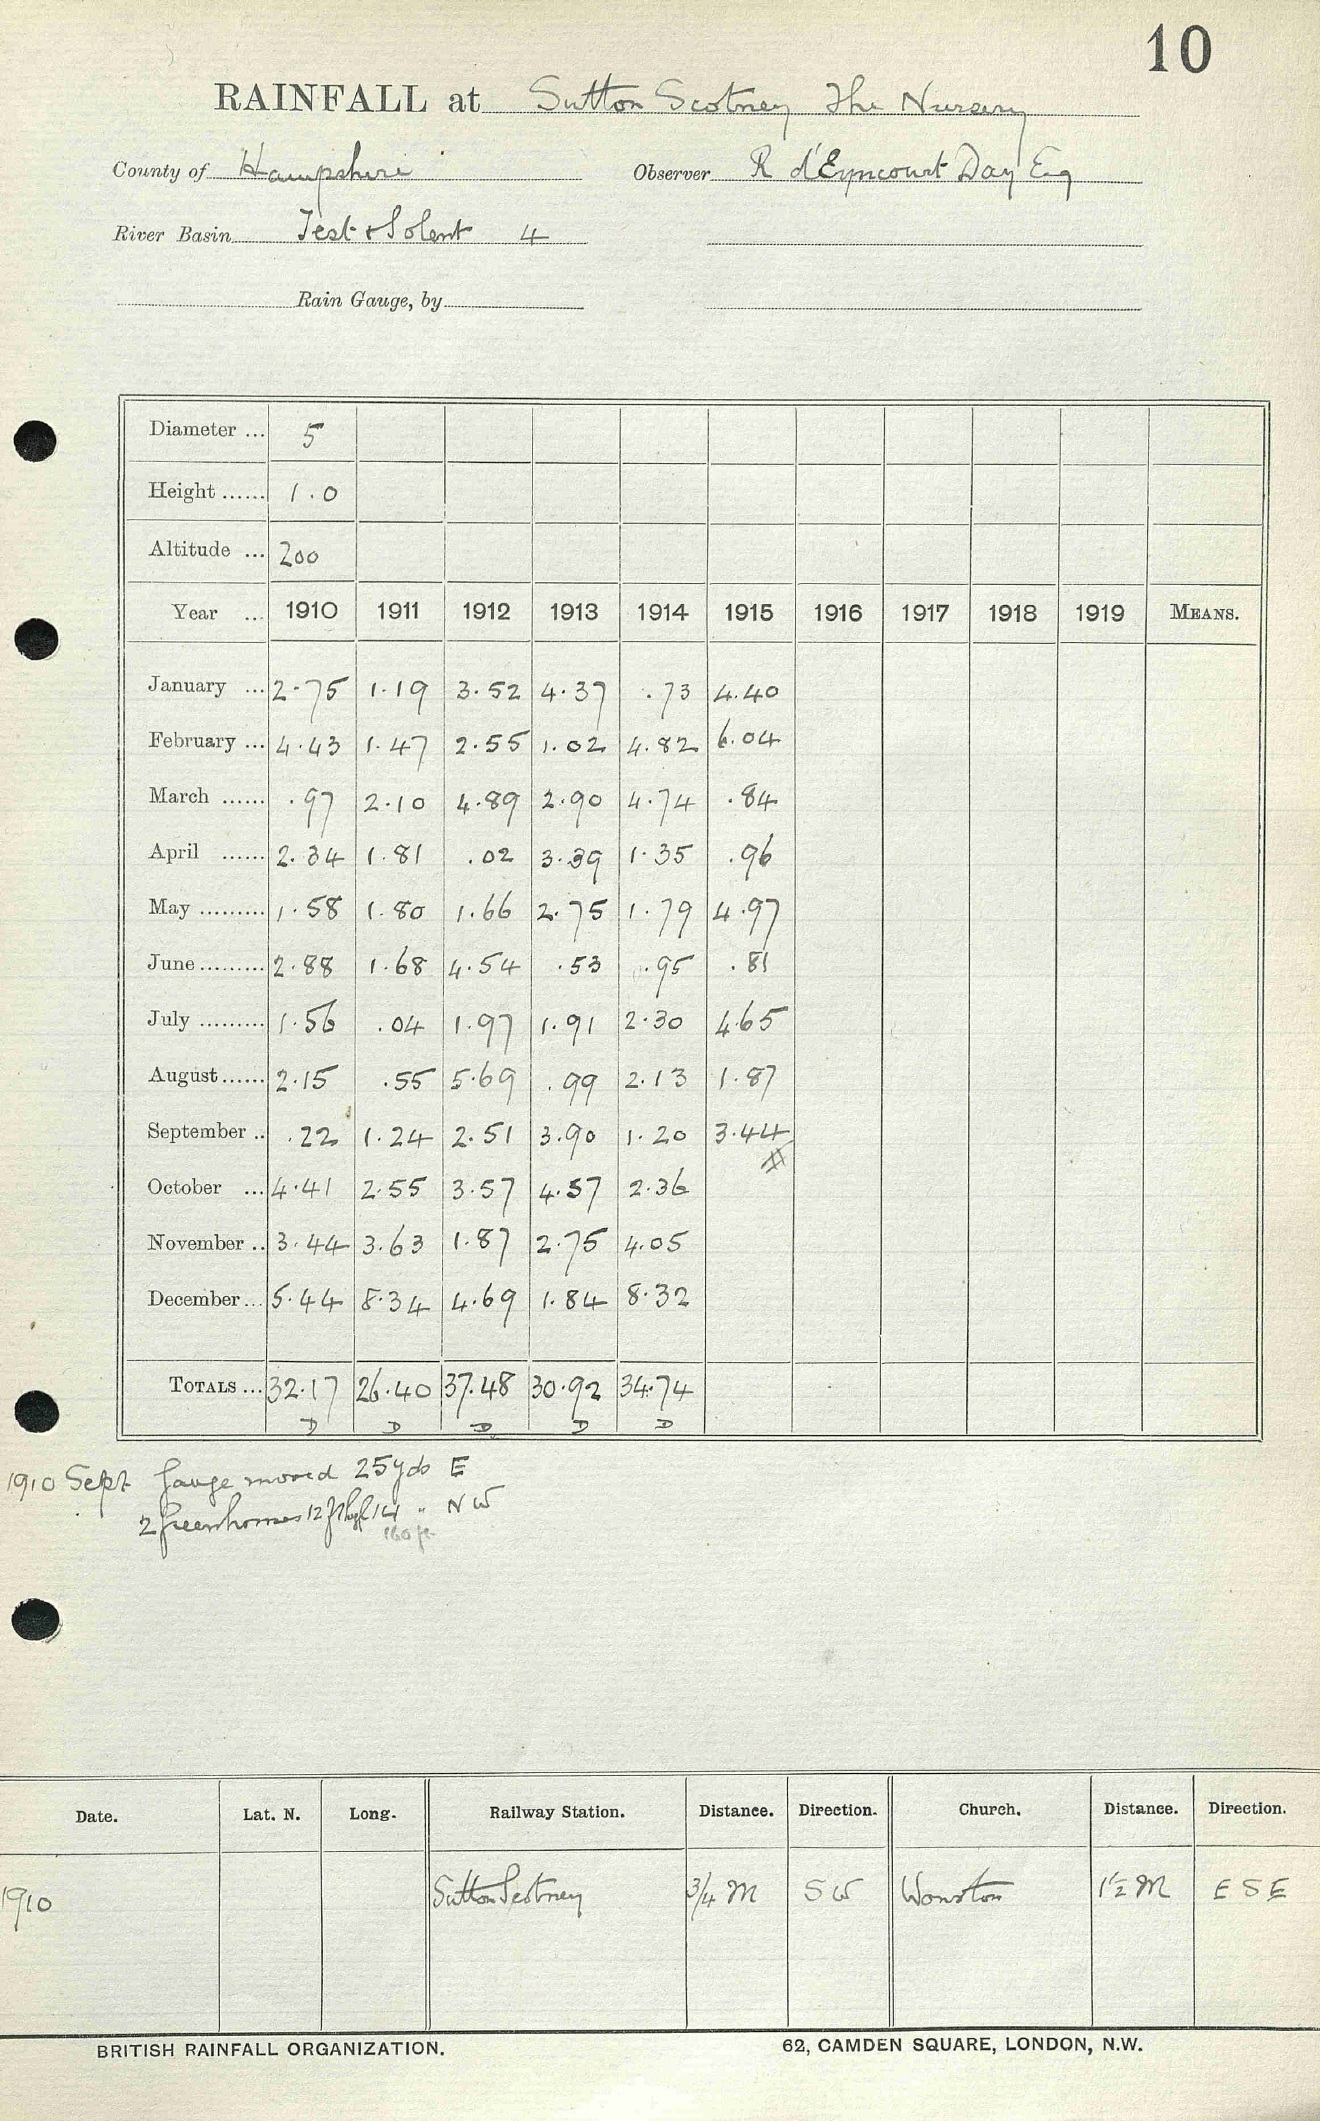 10
RAINFALL at Sutton Scotney The Nursery
County of Hampshire Observer R d'Eyncourt Day Esq
River Basin Test & Solent 4
Rain Gauge, by
Diameter ... 5
Height ...... 1.0
Altitude ... 200
Year ... 1910 1911 1912 1913 1914 1915 1916 1917 1918 1919 MEANS.
January ... 2.75 1.19 3.52 4.37 .73 4.40
February ... 4.43 1.47 2.55 1.02 4.82 6.04
March ...... .97 2.10 4.89 2.90 4.74 .84
April ...... 2.34 1.81 .02 3.39 1.35 .96
May ......... 1.58 1.80 1.66 2.75 1.79 4.97
June ......... 2.88 1.68 4.54 .53 .95 .81
July ......... 1.56 .04 1.97 1.91 2.30 4.65
August ...... 2.15 .55 5.69 .99 2.13 1.87
September .. .22 1.24 2.51 3.90 1.20 3.44
#
October ... 4.41 2.55 3.57 4.57 2.36
November .. 3.44 3.63 1.87 2.75 4.05
December ... 5.44 8.34 4.69 1.84 8.32
TOTALS ... 32.17 26.40 37.48 30.92 34.74
D D D D D
1910 Sept Gauge moved 25 yds E
2 Greenhouses 12 ft high 14 " NW
160 ft
Date. Lat. N. Long. Railway Station. Distance. Direction. Church. Distance. Direction.
1910 Sutton Scotney 3/4 M SW Wonston 1½ M ESE
BRITISH RAINFALL ORGANIZATION. 62, CAMDEN SQUARE, LONDON, N.W.